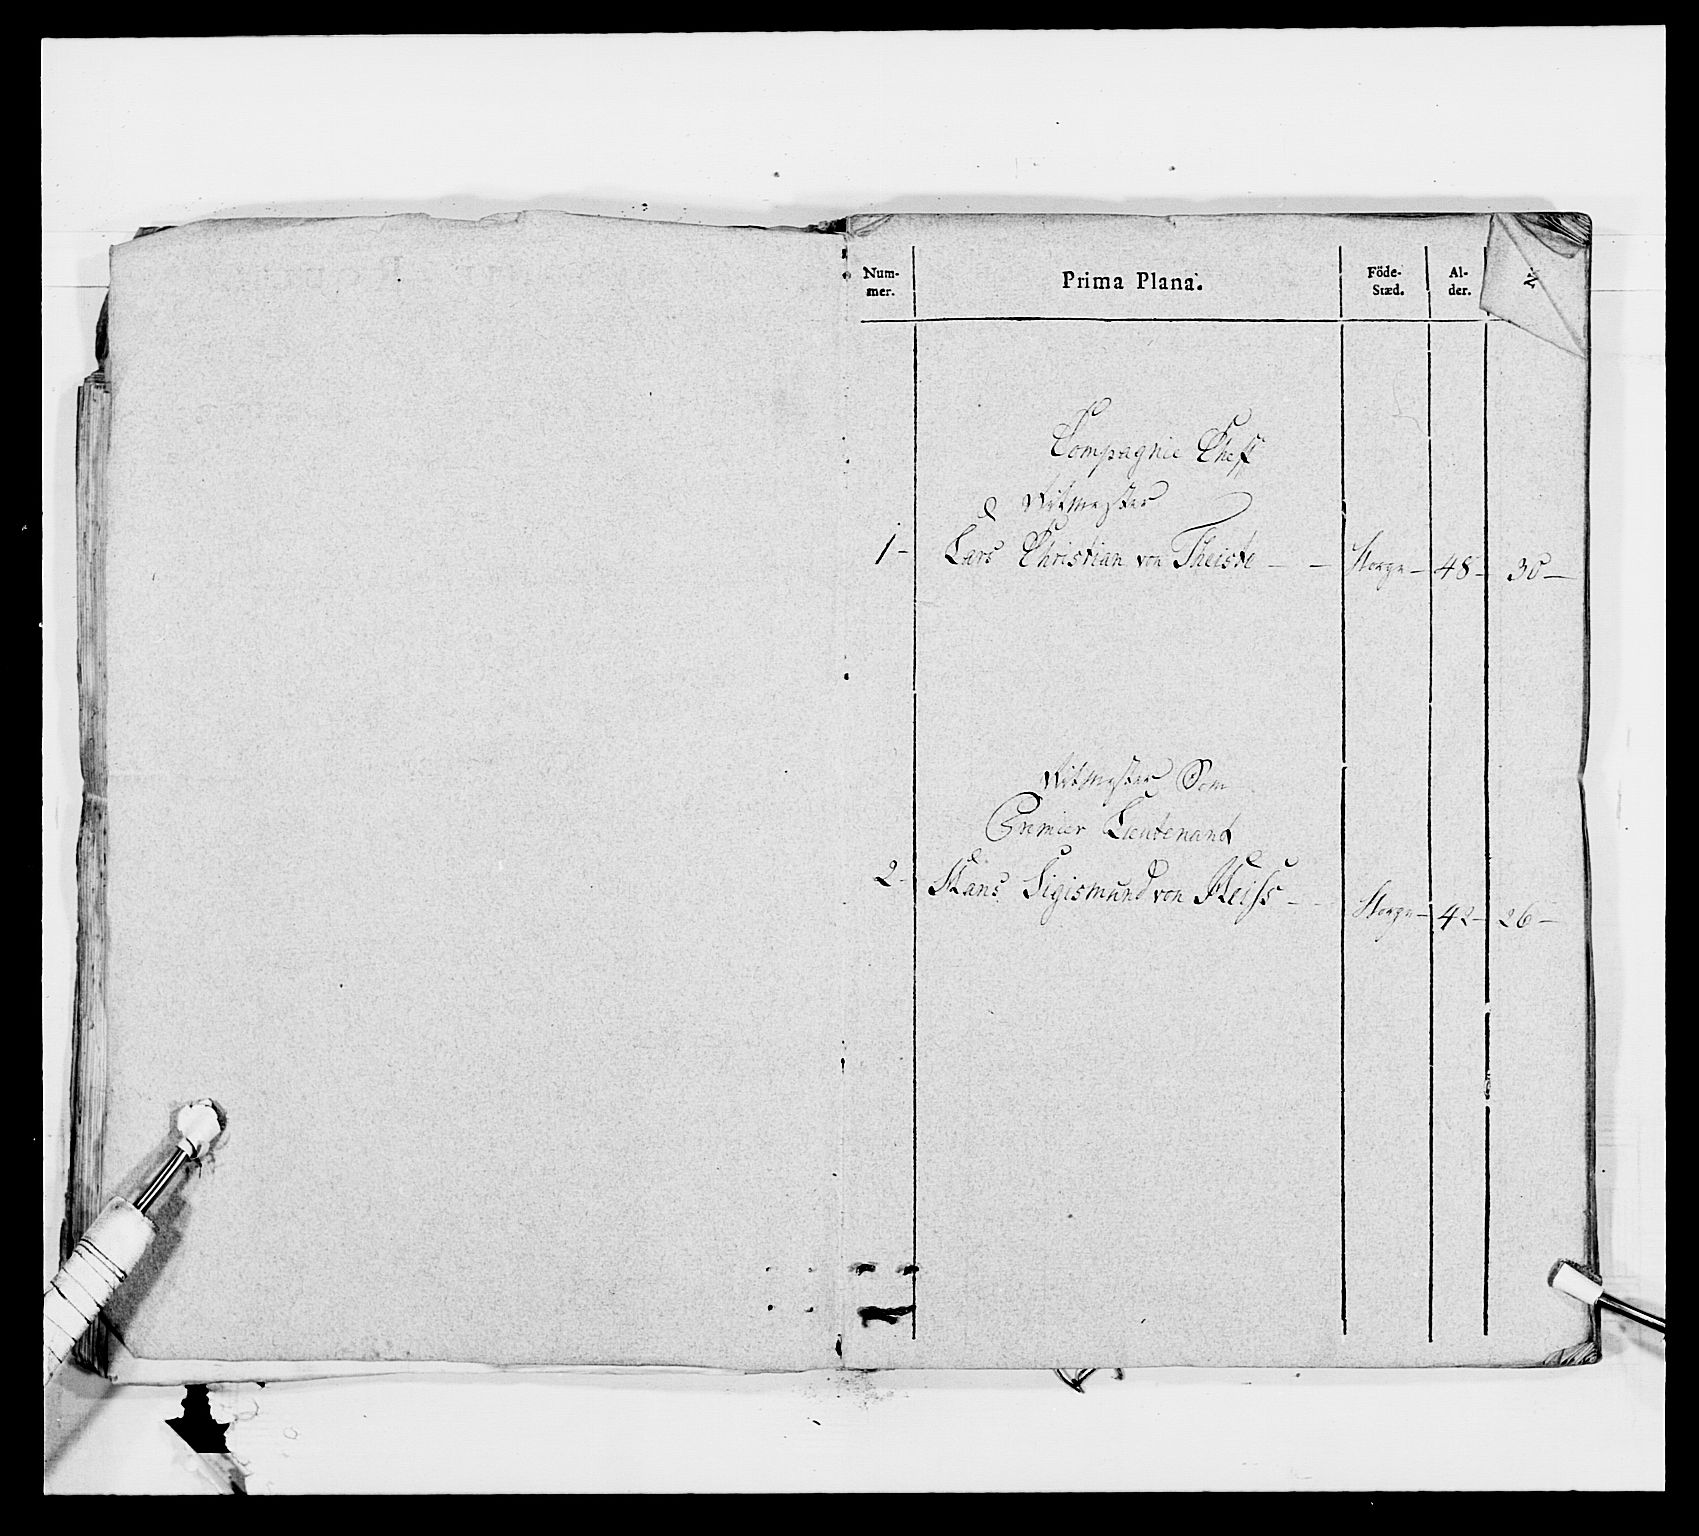 Num-mer. Prima Plana. Föde-Stæd. Al-der. N
Compagnie Cheff
Ritmester
1- Lars Christian von Theiste - - Norge - 48 - 30 -
Ritmester Som
Premier Lieutenant
2- Hans Sigismund von Heiss - - Norge - 42 - 26 -